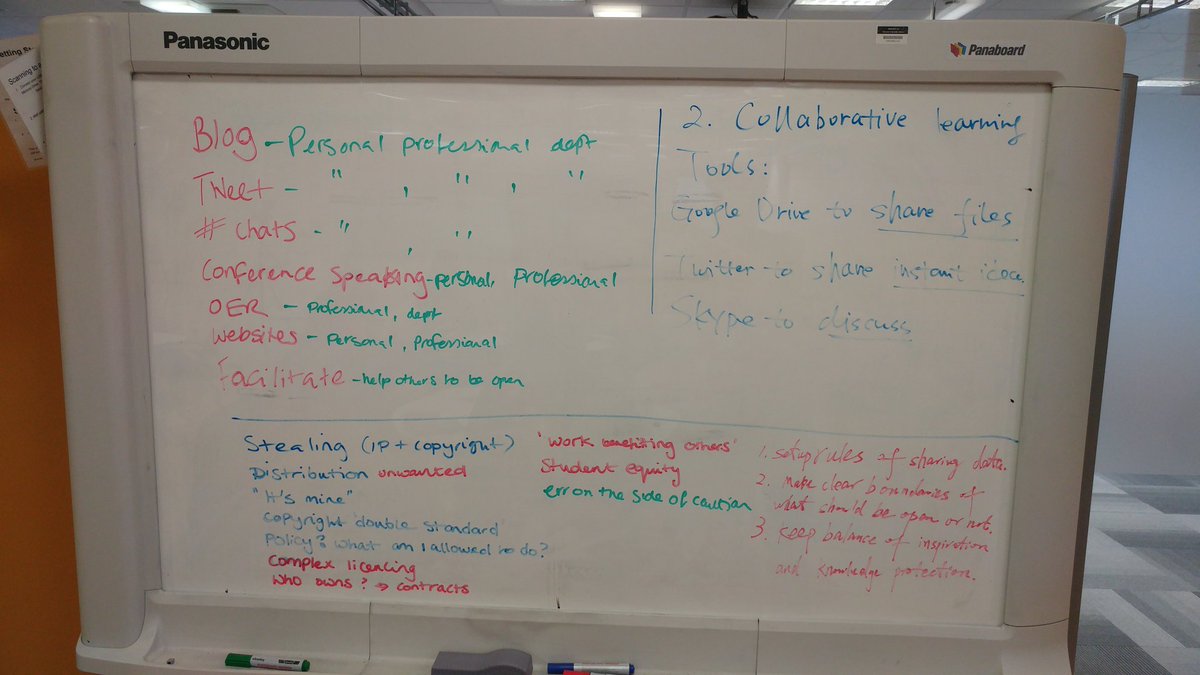 Panasonic
Panaboard
Blog - Personal professional dept
Tweet - " , " , "
# chats - " , "
Conference Speaking - personal, Professional
OER - Professional, dept
Websites - Personal, Professional
Facilitate - help others to be open
2. Collaborative learning
Tools:
Google Drive to share files
Twitter to share instant
Skype to discuss
Stealing (IP + copyright)
Distribution unwanted
"It's mine"
copyright double standard
Policy? What am I allowed to do?
Complex licencing
Who owns? → contracts
'Work benefiting others'
Student equity
err on the side of caution
1. setup rules of sharing data.
2. make clear boundaries of
what should be open or not.
3. keep balance of inspiration
and knowledge protection.